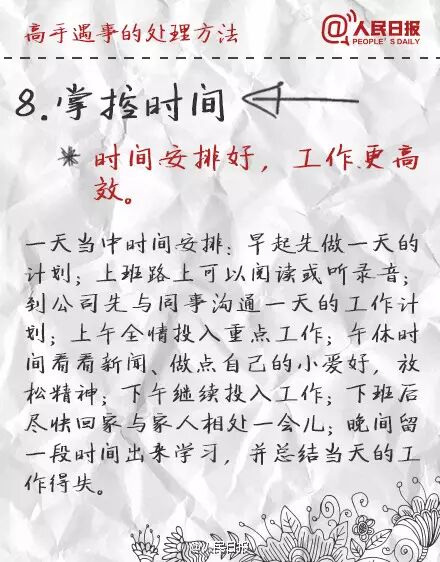 高手遇事的处理方法
@人民日报
PEOPLE'S DAILY
8.掌控时间
* 时间安排好，工作更高
效。
一天当中时间安排：早起先做一天的
计划；上班路上可以阅读或听录音；
到公司先与同事沟通一天的工作计
划；上午全情投入重点工作；午休时
间看看新闻、做点自己的小爱好，放
松精神；下午继续投入工作；下班后
尽快回家与家人相处一会儿；晚间留
一段时间出来学习，并总结当天的工
作得失。
@人民日报